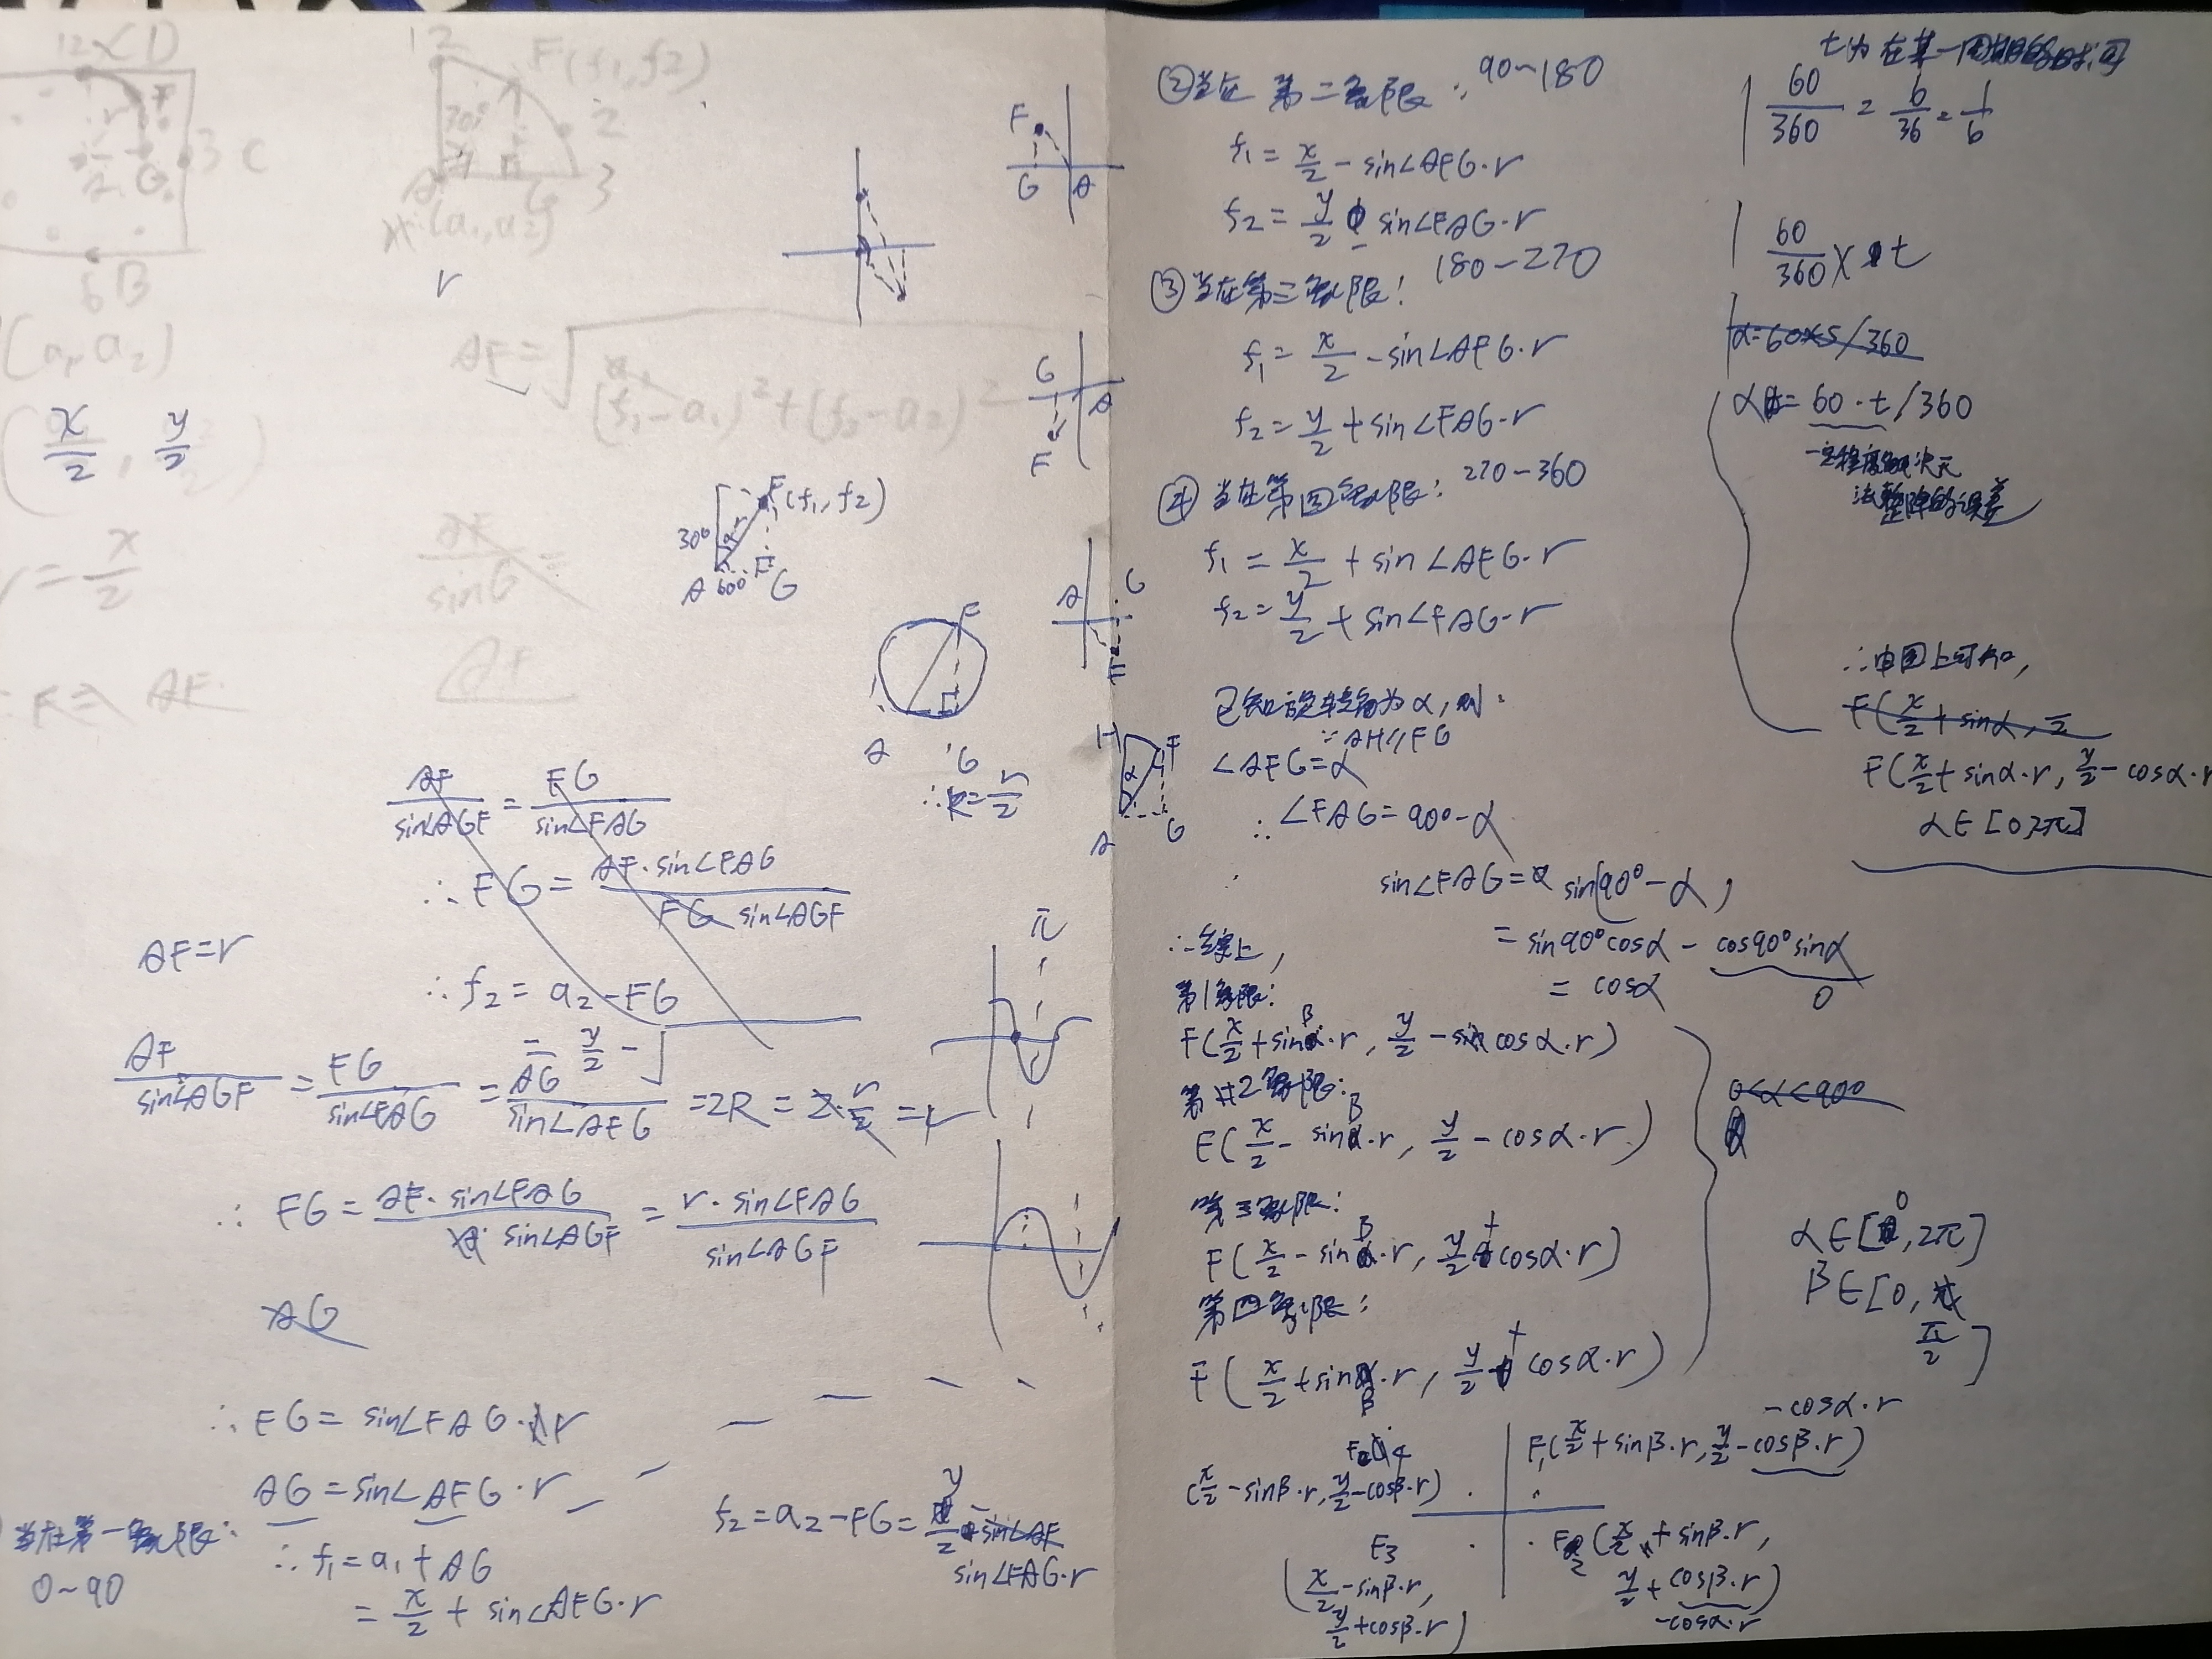 12(D)
3 C
6 B
(a₁, a₂)
(x/2, y/2)
r = x/2
12
F(f₁, f₂)
30°
2
3
A
(a₁, a₂)
r
AF = √((f₁-a₁)²+(f₂-a₂)²
AF/sinG =
AF
F
G A
G
A
F
A G
F
30° α r F(f₁, f₂)
A 60° G
F
A G
∴ R = r/2
AF/sin∠AGF = FG/sin∠FAG
∴ FG = AF·sin∠FAG / FG sin∠AGF
AF = r
∴ f₂ = a₂ - FG
= y/2 - √
AF/sin∠AGF = FG/sin∠FAG = AG/sin∠AFG = 2R = 2·r/2 = r
∴ FG = AF·sin∠FAG / sin∠AGF = r·sin∠FAG / sin∠AGF
AG
π
∴ FG = sin∠FAG·r
AG = sin∠AFG·r
当在第一象限:
0~90
∴ f₁ = a₁ + AG
= x/2 + sin∠AFG·r
f₂ = a₂ - FG = y/2 - sin∠AF
sin∠FAG·r
②当在第二象限: 90~180
f₁ = x/2 - sin∠AFG·r
f₂ = y/2 - sin∠FAG·r
③当在第三象限: 180-270
f₁ = x/2 - sin∠AFG·r
f₂ = y/2 + sin∠FAG·r
④当在第四象限: 270-360
f₁ = x/2 + sin∠AFG·r
f₂ = y/2 + sin∠FAG·r
已知旋转角为α, 则:
∵ AH∥FG
∠AFG = α
∴ ∠FAG = 90°-α
H F
α
A G
sin∠FAG = sin(90°-α)
= sin90°cosα - cos90°sinα
0
= cosα
∴综上,
第1象限:
F(x/2+sinβ·r, y/2-cosα·r)
第2象限:
F(x/2-sinβ·r, y/2-cosα·r)
第三象限:
F(x/2-sinβ·r, y/2+cosα·r)
第四象限:
F(x/2+sinβ·r, y/2+cosα·r)
0<α<90°
α∈[0, 2π]
β∈[0, π/2]
-cosα·r
F₄
(x/2-sinβ·r, y/2-cosβ·r)
F₁(x/2+sinβ·r, y/2-cosβ·r)
F₃
(x/2-sinβ·r, y/2+cosβ·r)
F₂(x/2+sinβ·r, y/2+cosβ·r)
-cosα·r
t为在某一周期的时间
60/360 = 6/36 = 1/6
60/360 × t
α=60×5/360
α = 60·t/360
∴由图上可知,
F(x/2+sinα, 
F(x/2+sinα·r, y/2-cosα·r
α∈[0, 2π]